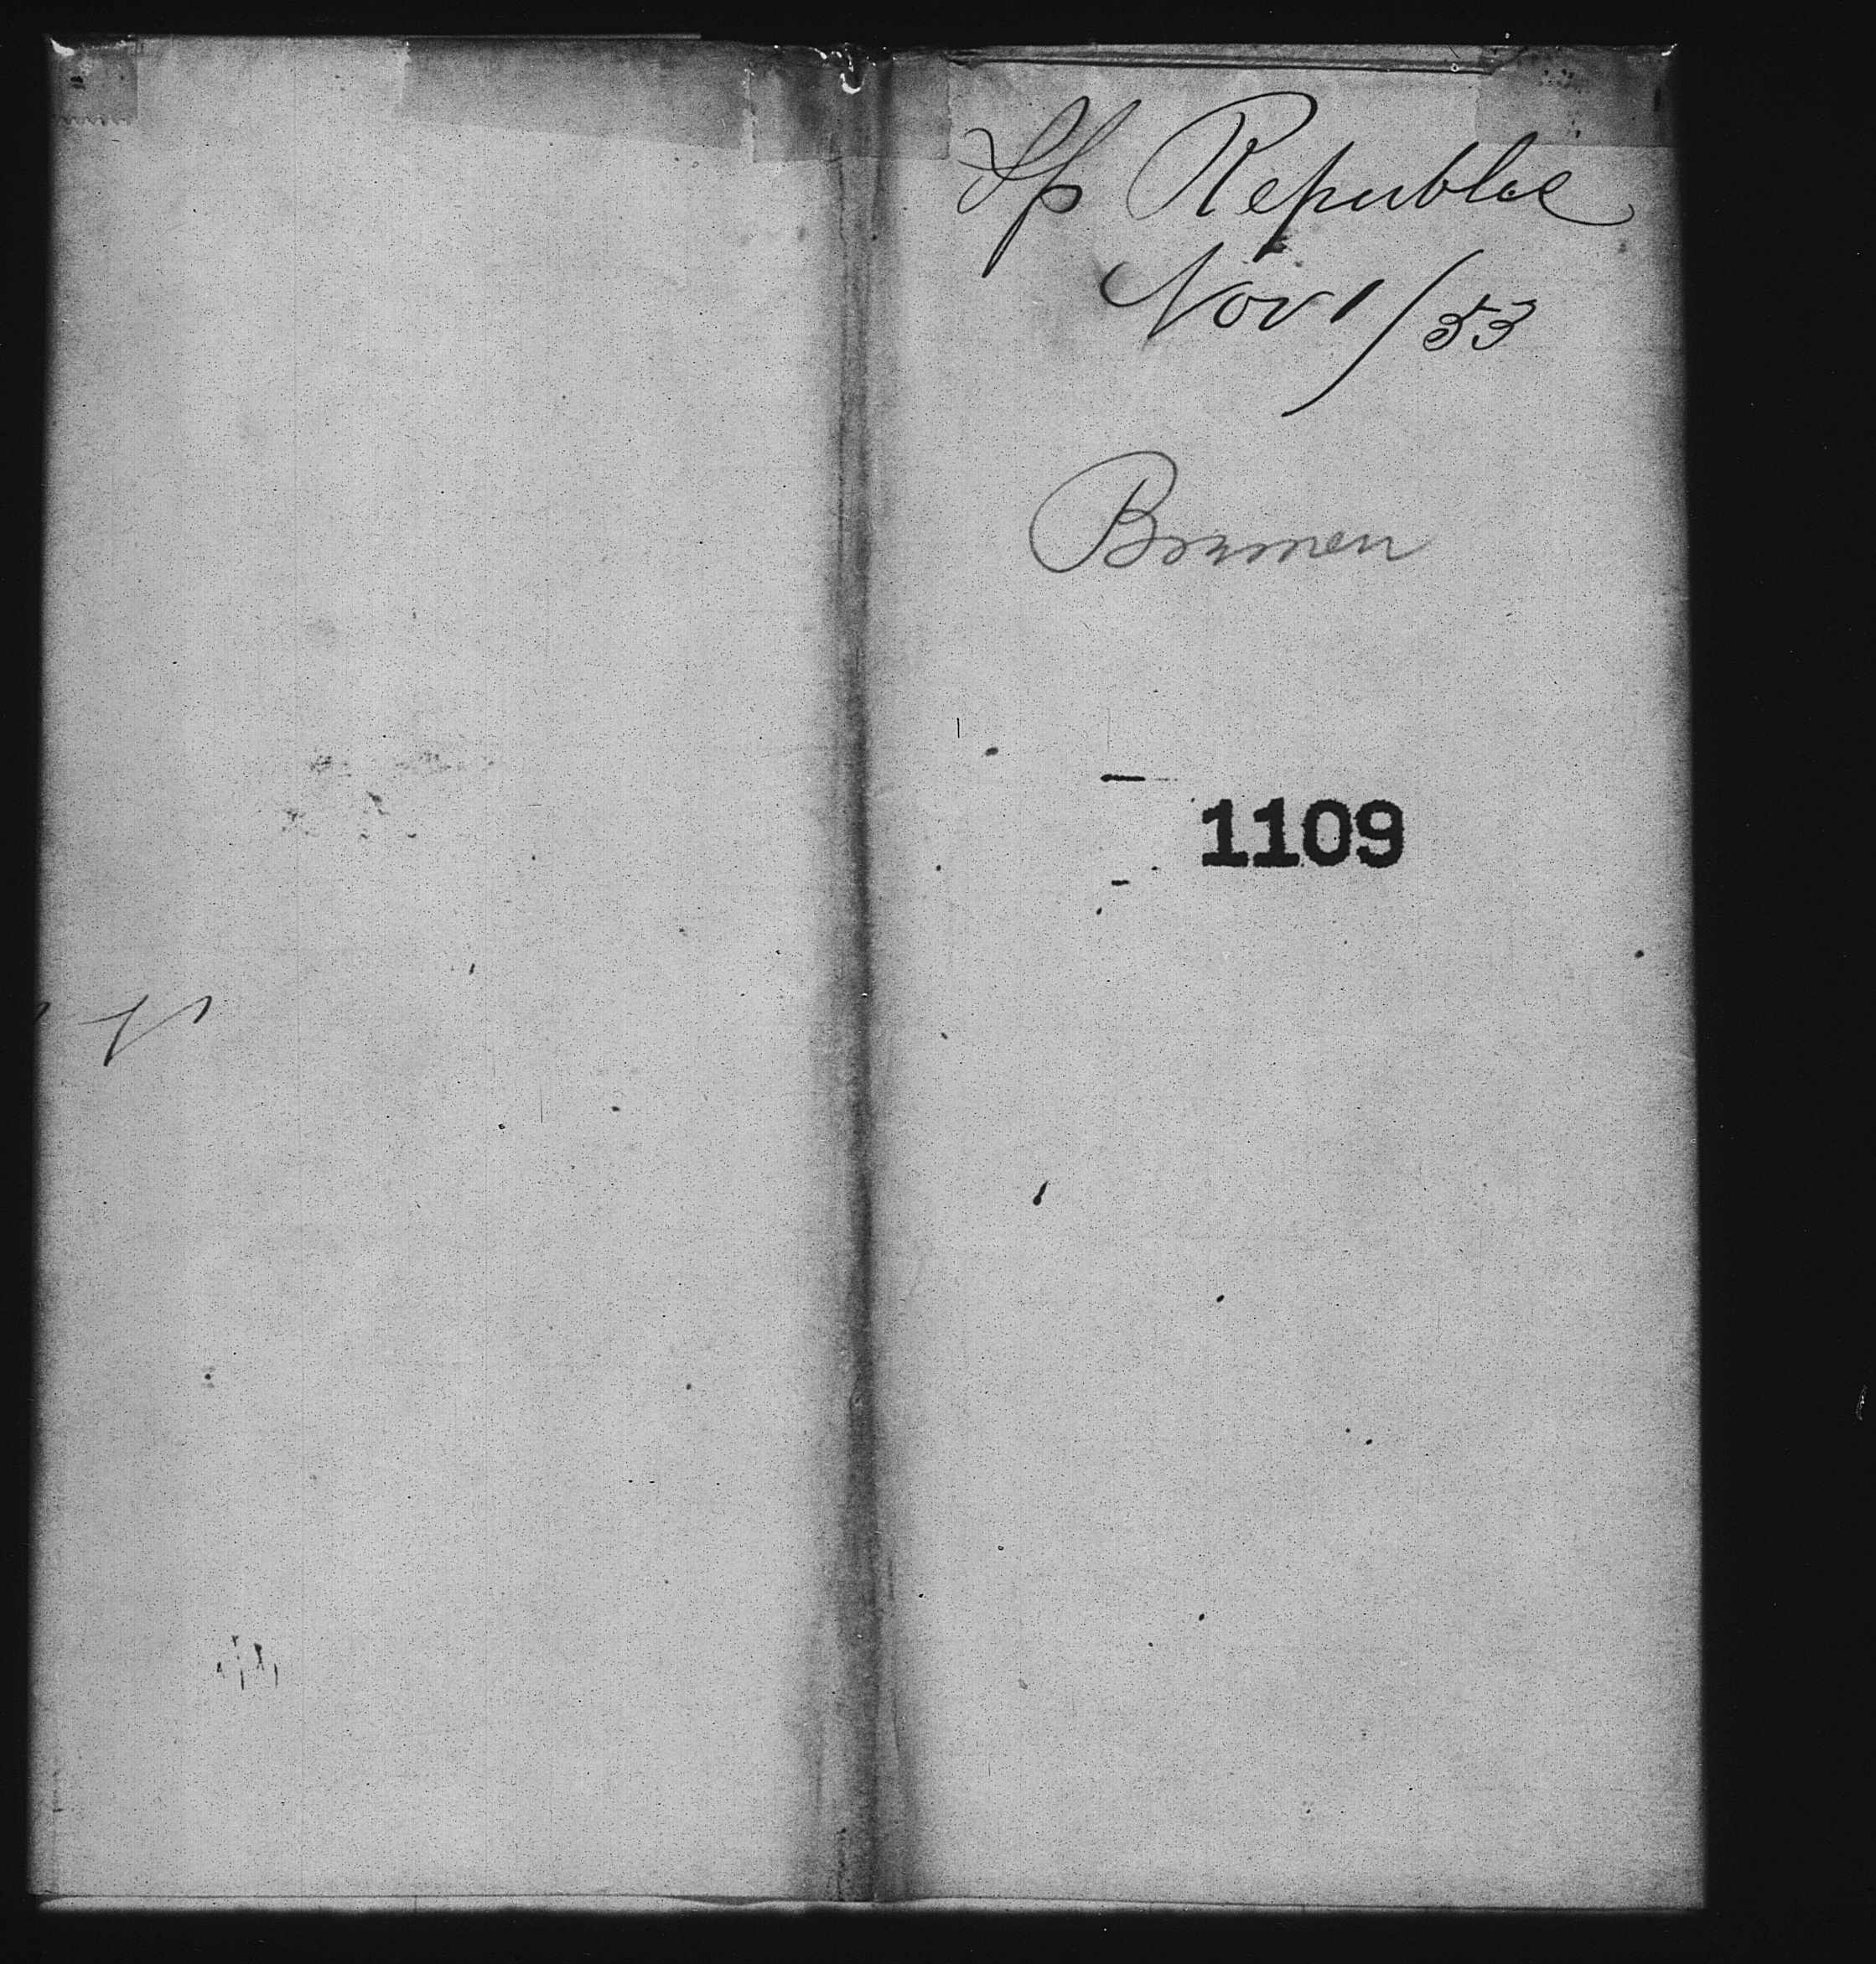 Sp Republic
Nov 1/53
Bremen
1109